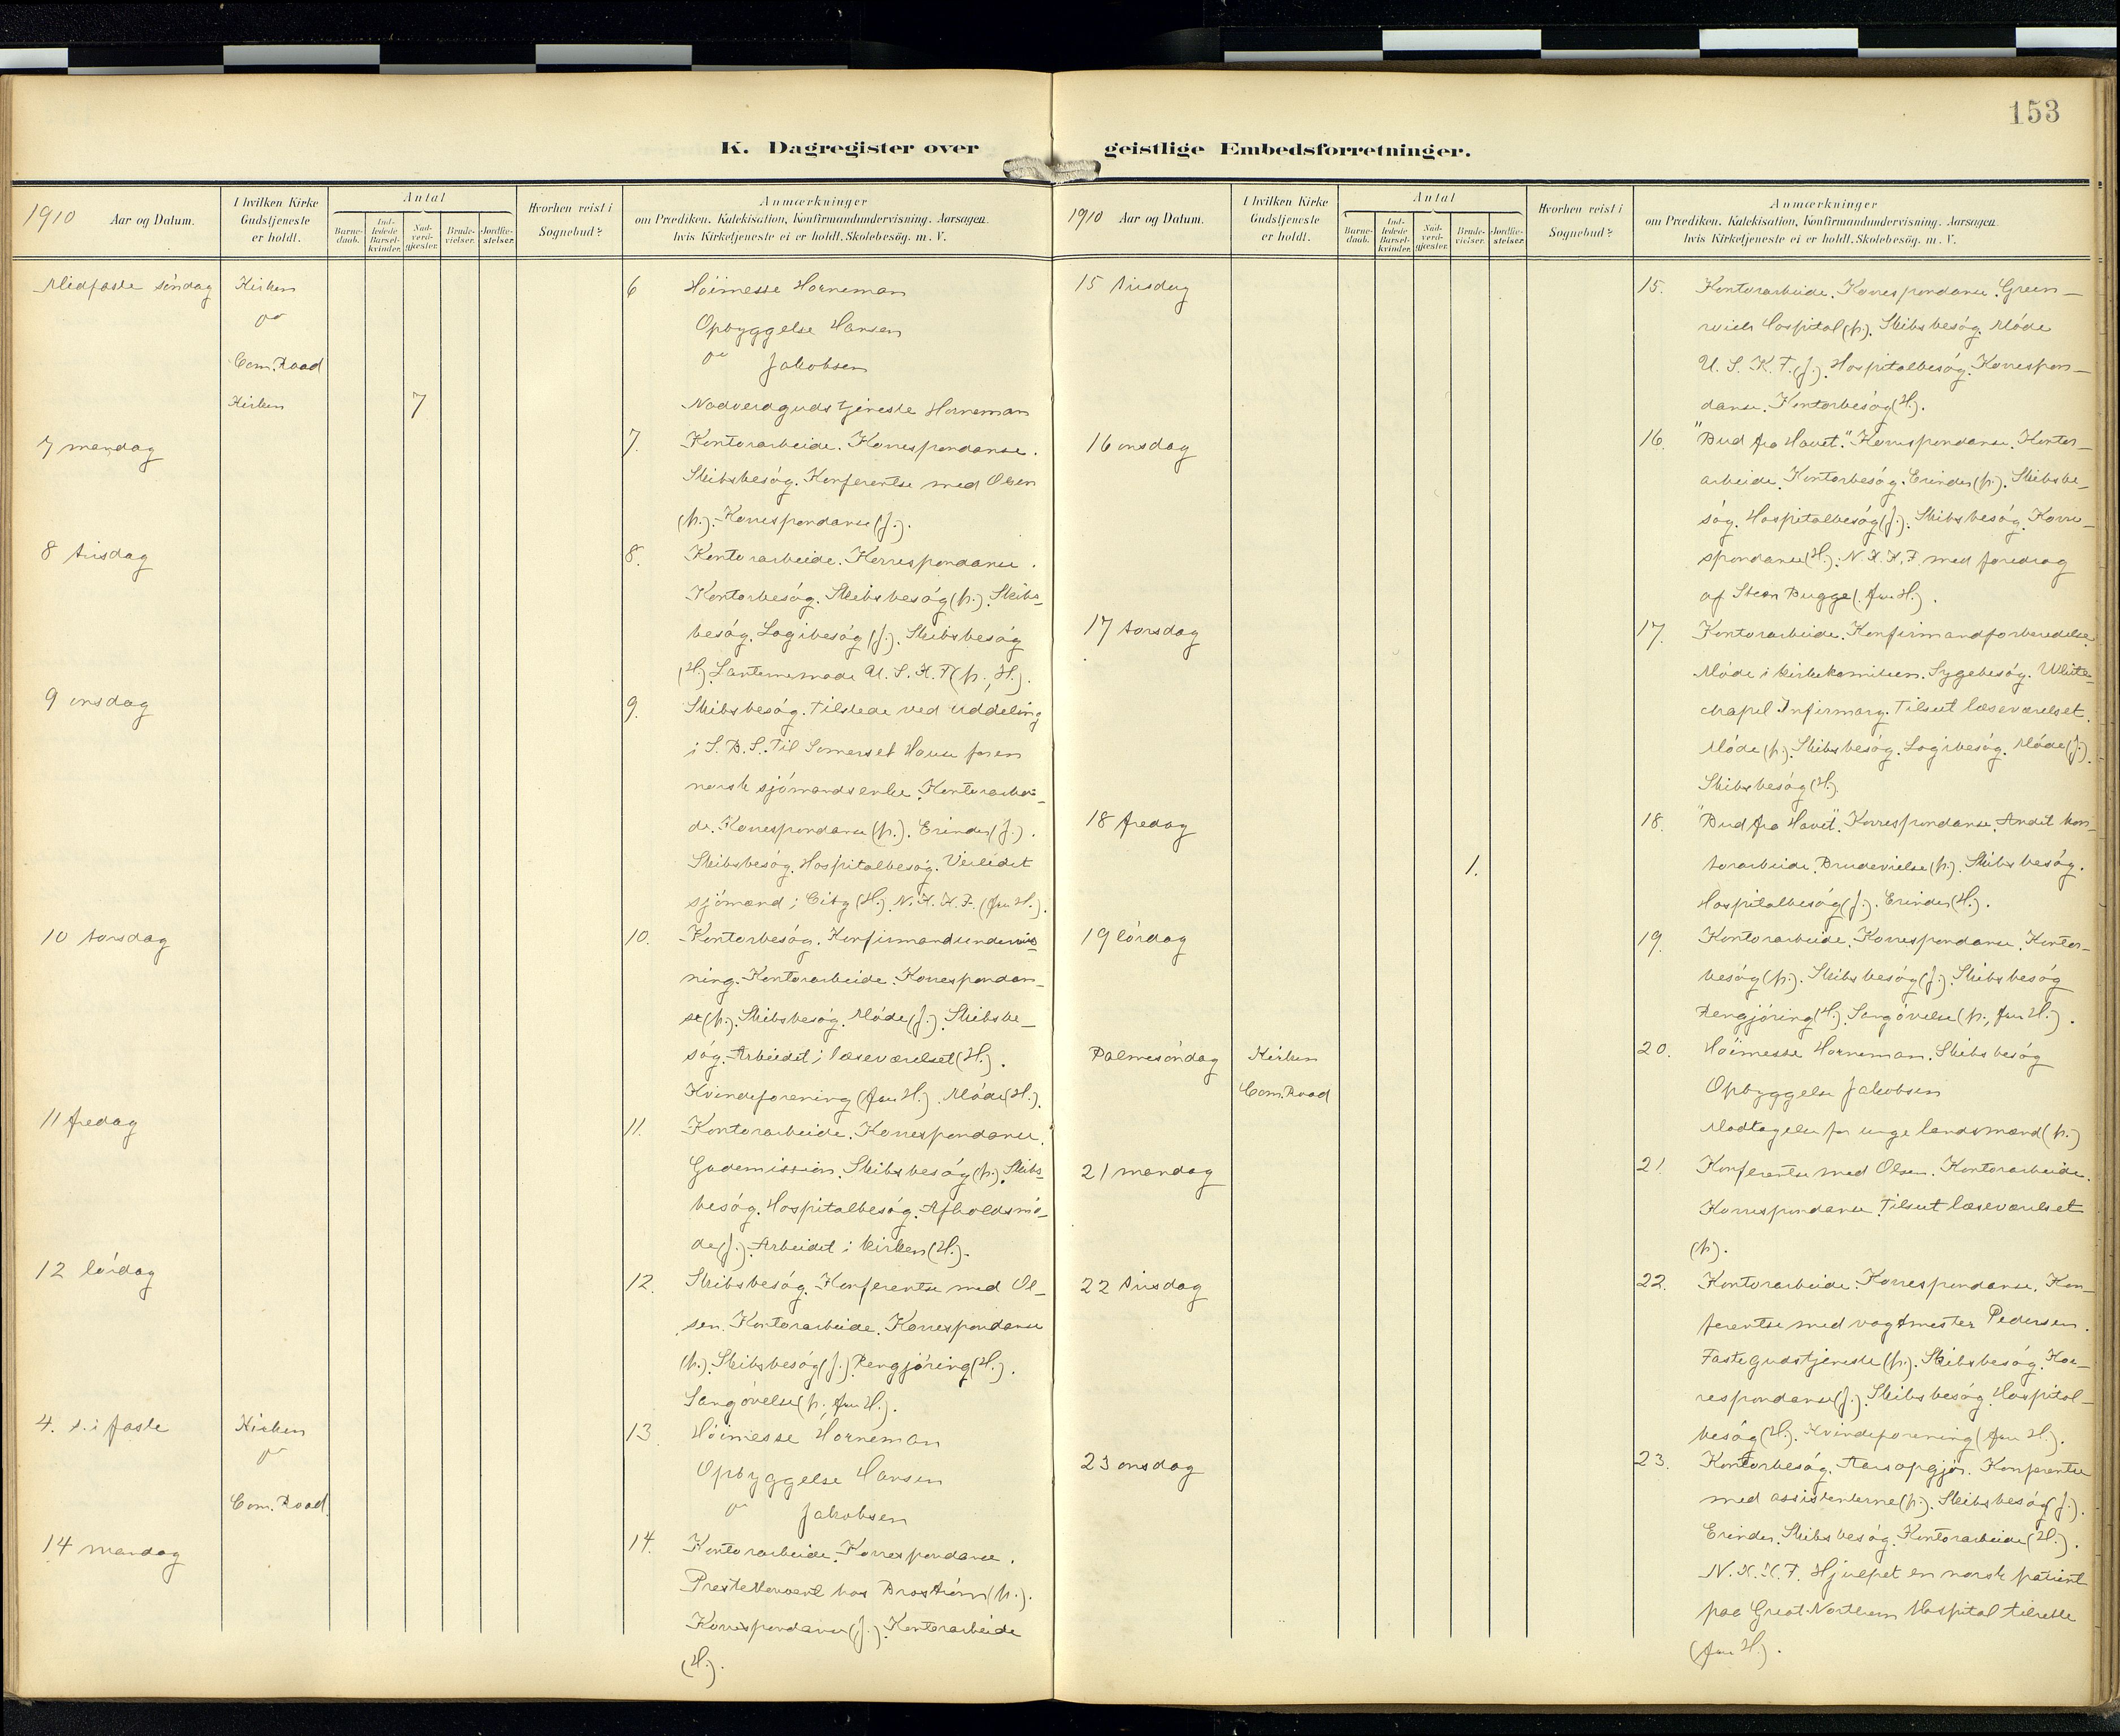 153
K. Dagregister over geistlige Embedsforretninger.
1910 Aar og Datum.
I hvilken Kirke Gudstjeneste er holdt.
Antal
Barnedaab.
Indledede Barselkvinder.
Nadverdgjester.
Brudevielser.
Jordfæstelser.
Hvorhen reist i Sognebud?
Anmærkninger
om Prædiken, Katekisation, Konfirmandundervisning. Aarsagen
hvis Kirketjeneste ei er holdt, Skolebesög. m. V.
Midfaste söndag Kirken 6 Höimesse Horneman
do Opbyggelse Hansen
Com. Road do Jakobsen
Kirken 7 Nadverdgudstjeneste Horneman
7 mandag 7. Kontorarbeide. Korrespondanse.
Skibsbesög. Konferentse med Olsen
(p.). Korrespondanse (J.).
8 tirsdag 8. Kontorarbeide. Korrespondanse.
Kontorbesög. Skibsbesög (p.). Skibs-
besög. Logibesög (J.). Skibsbesög
(H.). Lanternemöde U. S. K. F. (p., H.).
9 onsdag 9. Skibsbesög. Tilstede ved uddeling
i S. B. S. Til Somerset House for en
norsk sjömandsenke. Kontorarbei-
de. Korrespondanse (p.). Erinder (J.).
Skibsbesög. Hospitalbesög. Veiledet
sjömænd i City (H.). N. K. K. F. (fru H.).
10 torsdag 10. Kontorbesög. Konfirmandundervis-
ning. Kontorarbeide. Korrespondan-
se (p.). Skibsbesög. Möde (J.). Skibsbe-
sög. Arbeidet i læseværelset (H.).
Kvindeforening (fru H.). Möde (H.).
11 fredag 11. Kontorarbeide. Korrespondanse.
Gademission. Skibsbesög (p.). Skibs-
besög. Hospitalbesög. Afholdsmö-
de (J.). Arbeidet i kirken (H.).
12 lördag 12. Skibsbesög. Konferentse med Ol-
sen. Kontorarbeide. Korrespondanse
(p.). Skibsbesög (J.) Rengjöring (H.).
Sangövelse (p., fru H.).
4. s. i faste Kirken 13. Höimesse Horneman
do Opbyggelse Hansen
Com. Road. do Jakobsen
14 mandag 14. Kontorarbeide. Korrespondanse.
Prestekonvent hos Broström (p.).
Korrespondanse (J.). Kontorarbeide
(H.).
1910 Aar og Datum.
I hvilken Kirke Gudstjeneste er holdt.
Antal
Barnedaab.
Indledede Barselkvinder.
Nadverdgjester.
Brudevielser.
Jordfæstelser.
Hvorhen reist i Sognebud?
Anmærkninger
om Prædiken, Katekisation, Konfirmandundervisning. Aarsagen
hvis Kirketjeneste ei er holdt, Skolebesög. m. V.
15 tirsdag 15. Kontorarbeide. Korrespondanse. Green-
wich Hospital (p.). Skibsbesög. Möde
U. S. K. F. (J.). Hospitalbesög. Korrespon-
danse. Kontorbesög (H.).
16 onsdag 16. "Bud fra Havet." Korrespondanse. Kontor-
arbeide. Kontorbesög. Erinder (p.). Skibsbe-
sög. Hospitalbesög (J.). Skibsbesög. Korre-
spondanse (H.). N. K. K. F. med foredrag
af Sten Bugge (. fru H.).
17 torsdag 17. Kontorarbeide. Konfirmandforberedelse.
Möde i kirkekomiteen. Sygebesög. White-
chapel Infirmary. Tilseet læseværelset.
Möde (p.). Skibsbesög. Logibesög. Möde (J.).
Skibsbesög (H.).
18 fredag 18. "Bud fra Havet". Korrespondanse. Andet kon-
1. torarbeide. Brudevielse (p.). Skibsbesög.
Hospitalbesög (J.). Erinder (H.).
19 lördag 19. Kontorarbeide. Korrespondanse. Kontor-
besög (p.). Skibsbesög (J.). Skibsbesög
Rengjöring (H.). Sangövelse (p., fru H.).
Palmesöndag Kirken 20. Höimesse Horneman. Skibsbesög
Com. Road Opbyggelse Jakobsen
Modtagelse for unge landsmænd (p.)
21 mandag 21. Konferentse med Olsen. Kontorarbeide.
Korrespondanse. Tilseet læseværelset
(p).
22 tirsdag 22. Kontorarbeide. Korrespondanse. Kon-
ferentse med vagtmester Pedersen.
Fastegudstjeneste (p.). Skibsbesög. Kor-
respondanse (J.). Skibsbesög. Hospital-
besög (H.). Kvindeforening (fru H.).
23 onsdag 23. Kontorbesög. Aarsopgjör. Konferentse
med assistenterne (p.). Skibsbesög (J.).
Erinder. Skibsbesög. Kontorarbeide (H.).
N. K. K. F. Hjulpet en norsk patient
paa Great Northern Hospital tilrette
(fru H.).